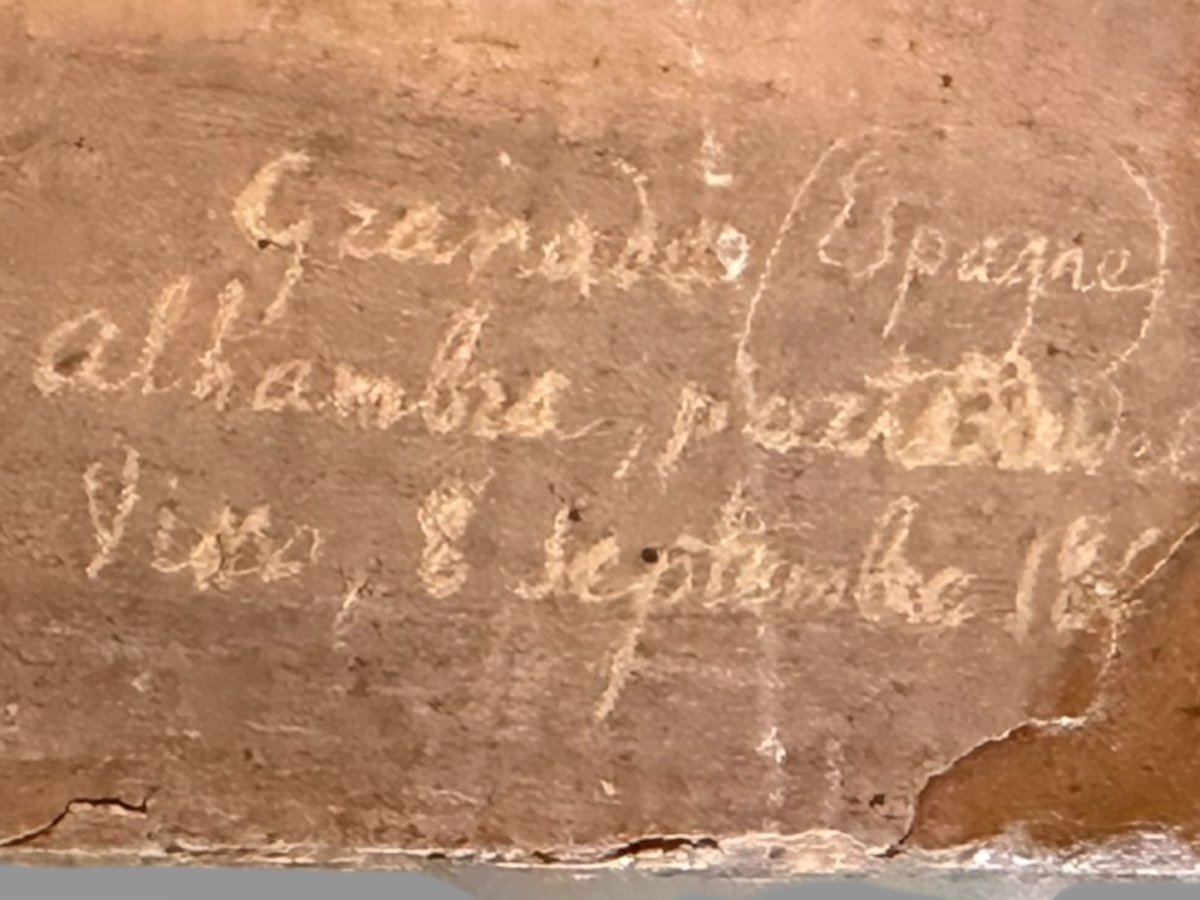 Grenade (Espagne)
Alhambra,
8 septembre 18